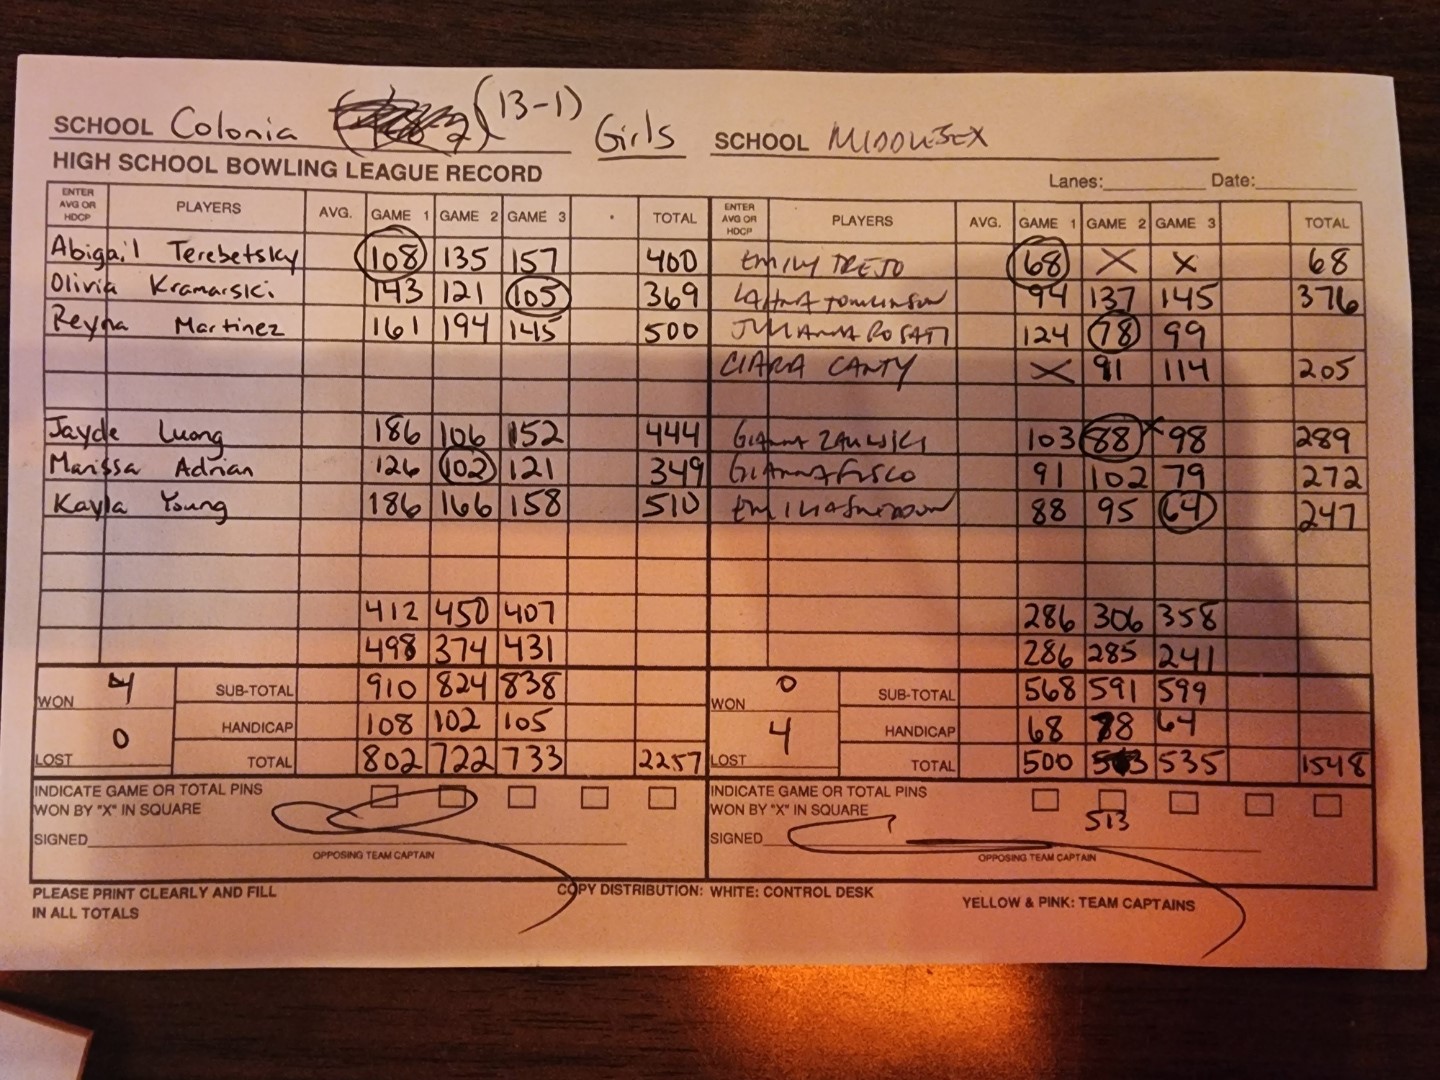 SCHOOL Colonia (13-1) Girls SCHOOL MIDDLESEX
HIGH SCHOOL BOWLING LEAGUE RECORD
Lanes: Date:
ENTER AVG OR HDCP PLAYERS AVG. GAME 1 GAME 2 GAME 3 TOTAL ENTER AVG OR HDCP PLAYERS AVG. GAME 1 GAME 2 GAME 3 TOTAL
Abigail Terebetsky 108 135 157 400 EMILY TREJO 68 X X 68
Olivia Kramarski 143 121 105 369 TOMLINSON 94 137 145 376
Reyna Martinez 161 194 145 500 JULIANNA ROSATI 124 78 99
CIARA CANTY X 91 114 205
Jayde Luong 186 106 152 444 GIANNA 103 88 X 98 289
Marissa Adrian 126 102 121 349 GIANNA FUSCO 91 102 79 272
Kayla Young 186 166 158 510 88 95 64 247
412 450 407 286 306 358
498 374 431 286 285 241
WON 4 SUB-TOTAL 910 824 838 WON 0 SUB-TOTAL 568 591 599
LOST 0 HANDICAP 108 102 105 LOST 4 HANDICAP 68 78 64
TOTAL 802 722 733 2257 TOTAL 500 513 535 1548
INDICATE GAME OR TOTAL PINS INDICATE GAME OR TOTAL PINS
WON BY "X" IN SQUARE WON BY "X" IN SQUARE 513
SIGNED SIGNED
OPPOSING TEAM CAPTAIN OPPOSING TEAM CAPTAIN
PLEASE PRINT CLEARLY AND FILL COPY DISTRIBUTION: WHITE: CONTROL DESK YELLOW & PINK: TEAM CAPTAINS
IN ALL TOTALS